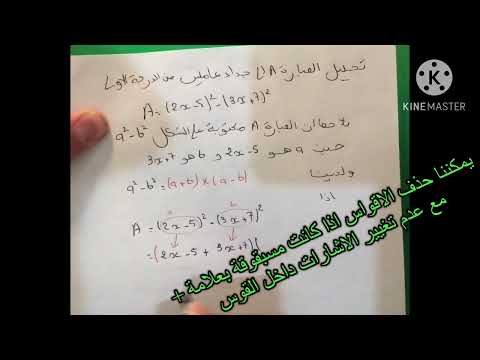 تحليل العبارة A إلى جداء عاملين من الدرجة الأولى
A = (2x-5)² - (3x+7)²
نلاحظ ان العبارة A مكتوبة على الشكل a² - b²
حيث a هو 2x-5 و b هو 3x+7
ولدينا a² - b² = (a+b) × (a-b)
اذا
a b
A = (2x-5)² - (3x+7)²
= (2x-5 + 3x+7) (
KINEMASTER
يمكننا حذف الاقواس اذا كانت مسبقوقة بعلامة +
مع عدم تغيير الاشارات داخل القوس